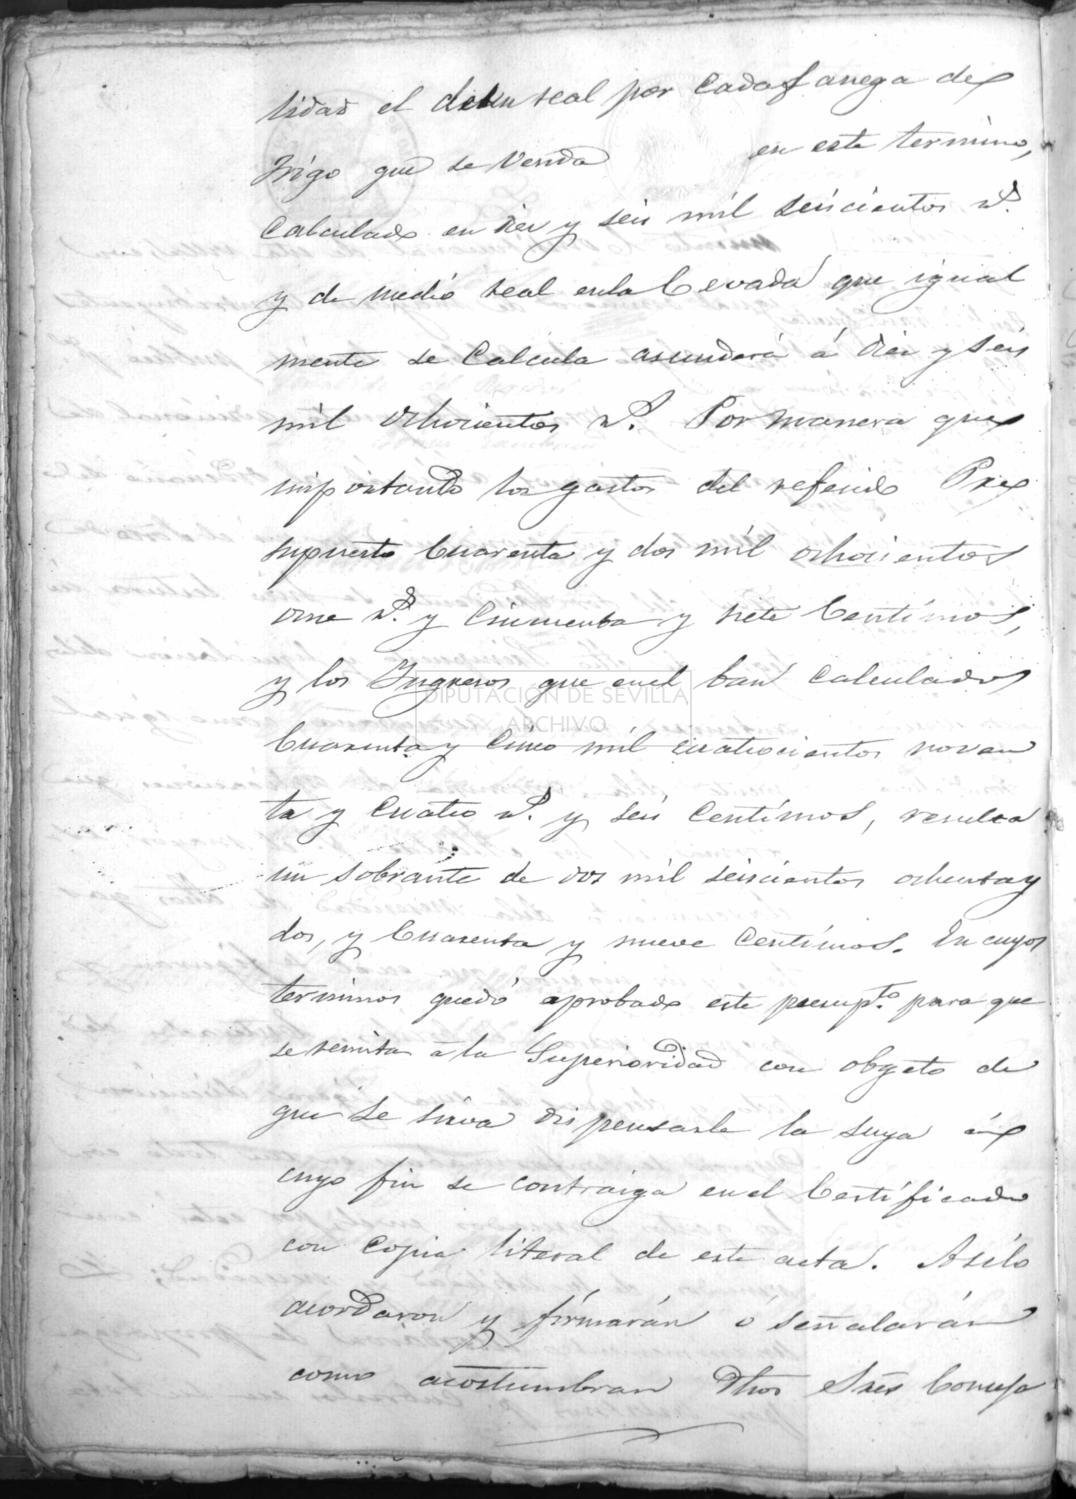 lidad el de un real por cada fanega de
trigo que se venda en este termino,
calculado en diez y seis mil seiscientos rs.
y de medio real en la Cevada que igual
mente se calcula ascenderá á diez y seis
mil ochocientos rs. Por manera que
importando los gastos del referido Pre
supuesto Cuarenta y dos mil ochocientos
once rs. y Cincuenta y siete Centímos,
y los Ingresos que en el ban calculados
DIPUTACION DE SEVILLA
ARCHIVO
Cuarenta y Cinco mil cuatrocientos noven
ta y cuatro rs. y seis Centímos, resulta
un sobrante de dos mil seiscientos ochenta y
dos, y Cuarenta y nueve Centímos. En cuyos
terminos quedó aprobado este presupto. para que
se remita á la Superioridad con obgeto de
que se sirva dispensarle la suya á
cuyo fin se contraiga en el Certíficado
con Copia literal de este acta. Asi lo
acordaron y fírmarán ó señalarán
como acostumbran dhos Sres Conceja